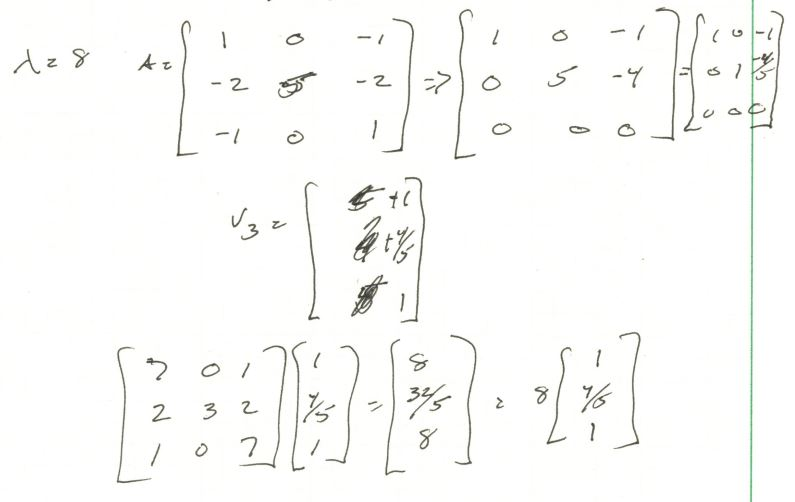 λ = 8 A = [ 1 0 -1 ; -2 5 -2 ; -1 0 1 ] => [ 1 0 -1 ; 0 5 -4 ; 0 0 0 ] = [ 1 0 -1 ; 0 1 -4/5 ; 0 0 0 ]
v3 = [ +1 ; +4/5 ; 1 ]
[ 7 0 1 ; 2 3 2 ; 1 0 7 ] [ 1 ; 4/5 ; 1 ] = [ 8 ; 32/5 ; 8 ] = 8 [ 1 ; 4/5 ; 1 ]